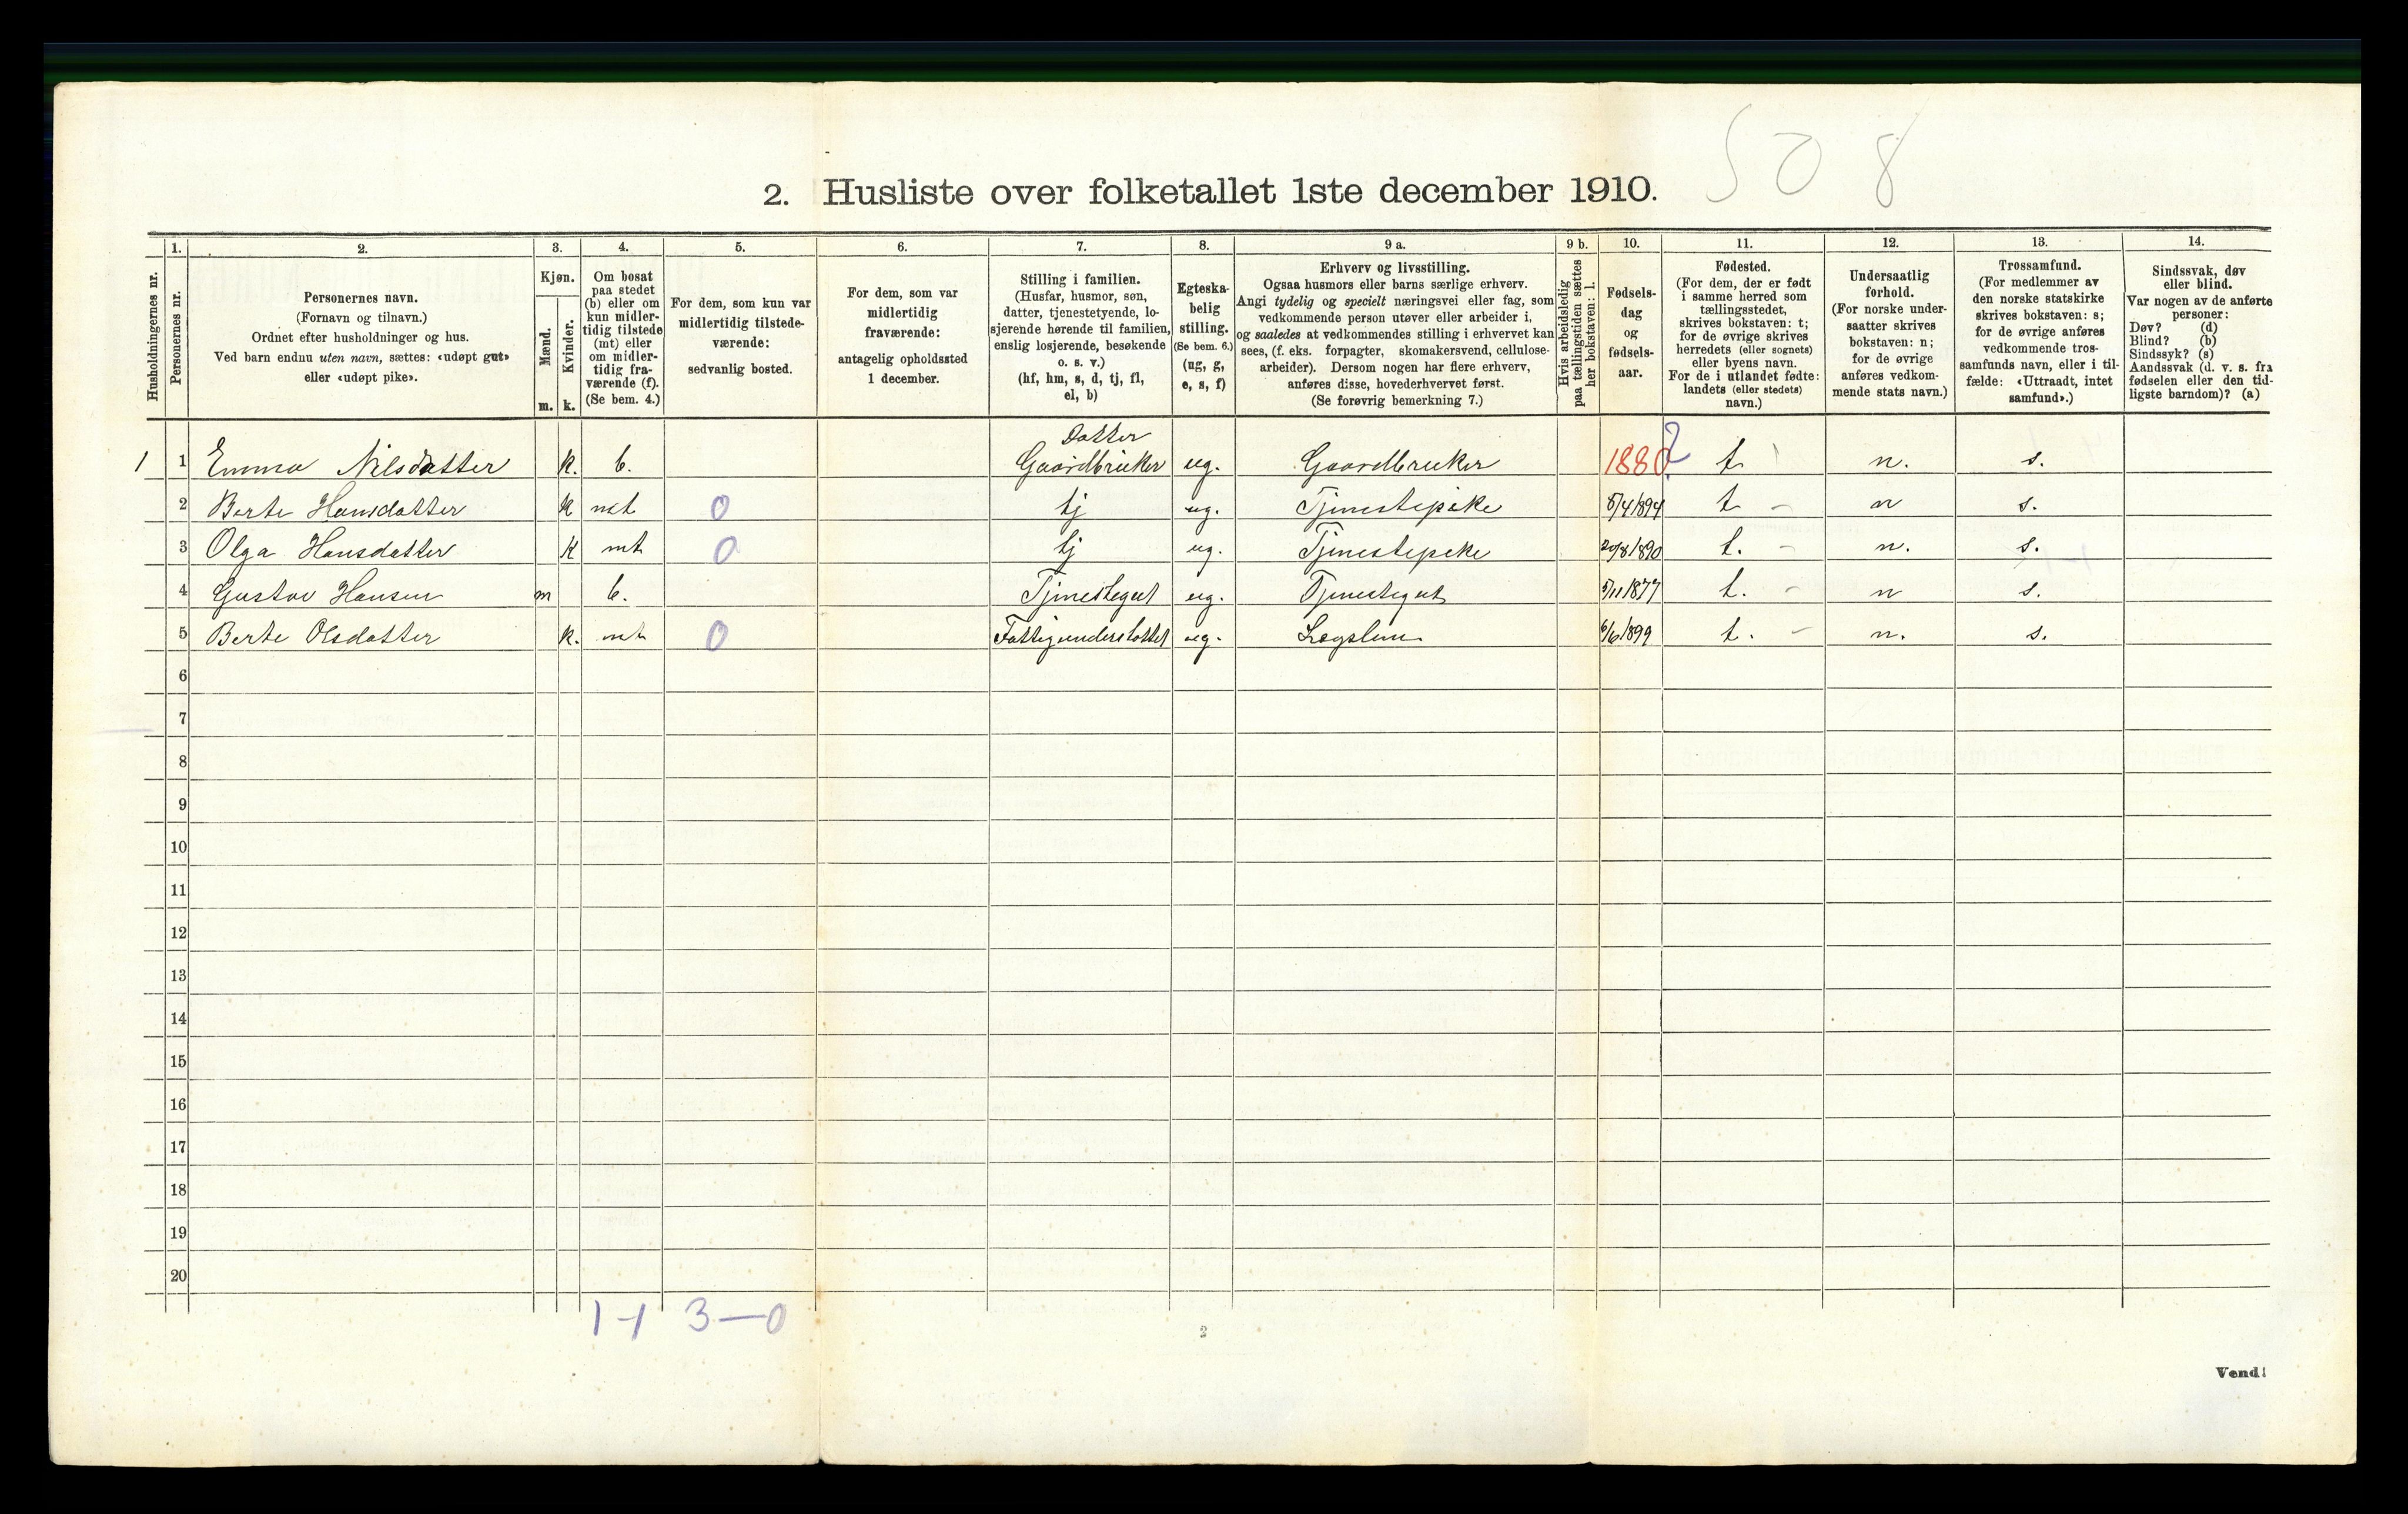 508
2. Husliste over folketallet 1ste december 1910.
Husholdningernes nr.
1.
Personernes nr.
2.
Personernes navn.
(Fornavn og tilnavn.)
Ordnet efter husholdninger og hus.
Ved barn endnu uten navn, sættes: «udøpt gut»
eller «udøpt pike».
3.
Kjøn.
Mænd.
Kvinder.
m. k.
4.
Om bosat
paa stedet
(b) eller om
kun midler-
tidig tilstede
(mt) eller
om midler-
tidig fra-
værende (f).
(Se bem. 4.)
5.
For dem, som kun var
midlertidig tilstede-
værende:
sedvanlig bosted.
6.
For dem, som var
midlertidig
fraværende:
antagelig opholdssted
1 december.
7.
Stilling i familien.
(Husfar, husmor, søn,
datter, tjenestetyende, lo-
sjerende hørende til familien,
enslig losjerende, besøkende
o. s. v.)
(hf, hm, s, d, tj, fl,
el, b)
8.
Egteska-
belig
stilling.
(Se bem. 6.)
(ug, g,
e, s, f)
9 a.
Erhverv og livsstilling.
Ogsaa husmors eller barns særlige erhverv.
Angi tydelig og specielt næringsvei eller fag, som
vedkommende person utøver eller arbeider i,
og saaledes at vedkommendes stilling i erhvervet kan
sees, (f. eks. forpagter, skomakersvend, cellulose-
arbeider). Dersom nogen har flere erhverv,
anføres disse, hovederhvervet først.
(Se forøvrig bemerkning 7.)
9 b.
Hvis arbeidsledig
paa tællingstiden sættes
her bokstaven: l.
10.
Fødsels-
dag
og
fødsels-
aar.
11.
Fødested.
(For dem, der er født
i samme herred som
tællingsstedet,
skrives bokstaven: t;
for de øvrige skrives
herredets (eller sognets)
eller byens navn.
For de i utlandet fødte:
landets (eller stedets)
navn.)
12.
Undersaatlig
forhold.
(For norske under-
saatter skrives
bokstaven: n;
for de øvrige
anføres vedkom-
mende stats navn.)
13.
Trossamfund.
(For medlemmer av
den norske statskirke
skrives bokstaven: s;
for de øvrige anføres
vedkommende tros-
samfunds navn, eller i til-
fælde: «Uttraadt, intet
samfund».)
14.
Sindssvak, døv
eller blind.
Var nogen av de anførte
personer:
Døv? (d)
Blind? (b)
Sindssyk? (s)
Aandssvak (d. v. s. fra
fødselen eller den tid-
ligste barndom)? (a)
Datter
1 1 Emma Nilsdatter k. b. Gaardbruker ug. Gaardbruker 1880? t. n. s.
2 Berte Hansdatter k mt 0 tj ug. Tjenestepike 5/4 1894 t - n s.
3 Olga Hansdatter k mt 0 tj ug. Tjenestepike 20/8 1890 t. - n. s.
4 Gustav Hansen m b. Tjenestegut ug. Tjenestegut 5/11 1877 t. - n s.
5 Berte Olsdatter k. mt 0 Fattigunderstøttet ug. Lægslem 6/6 1899 t. - n. s.
6
7
8
9
10
11
12
13
14
15
16
17
18
19
20
1-1 3-0
2
Vend!